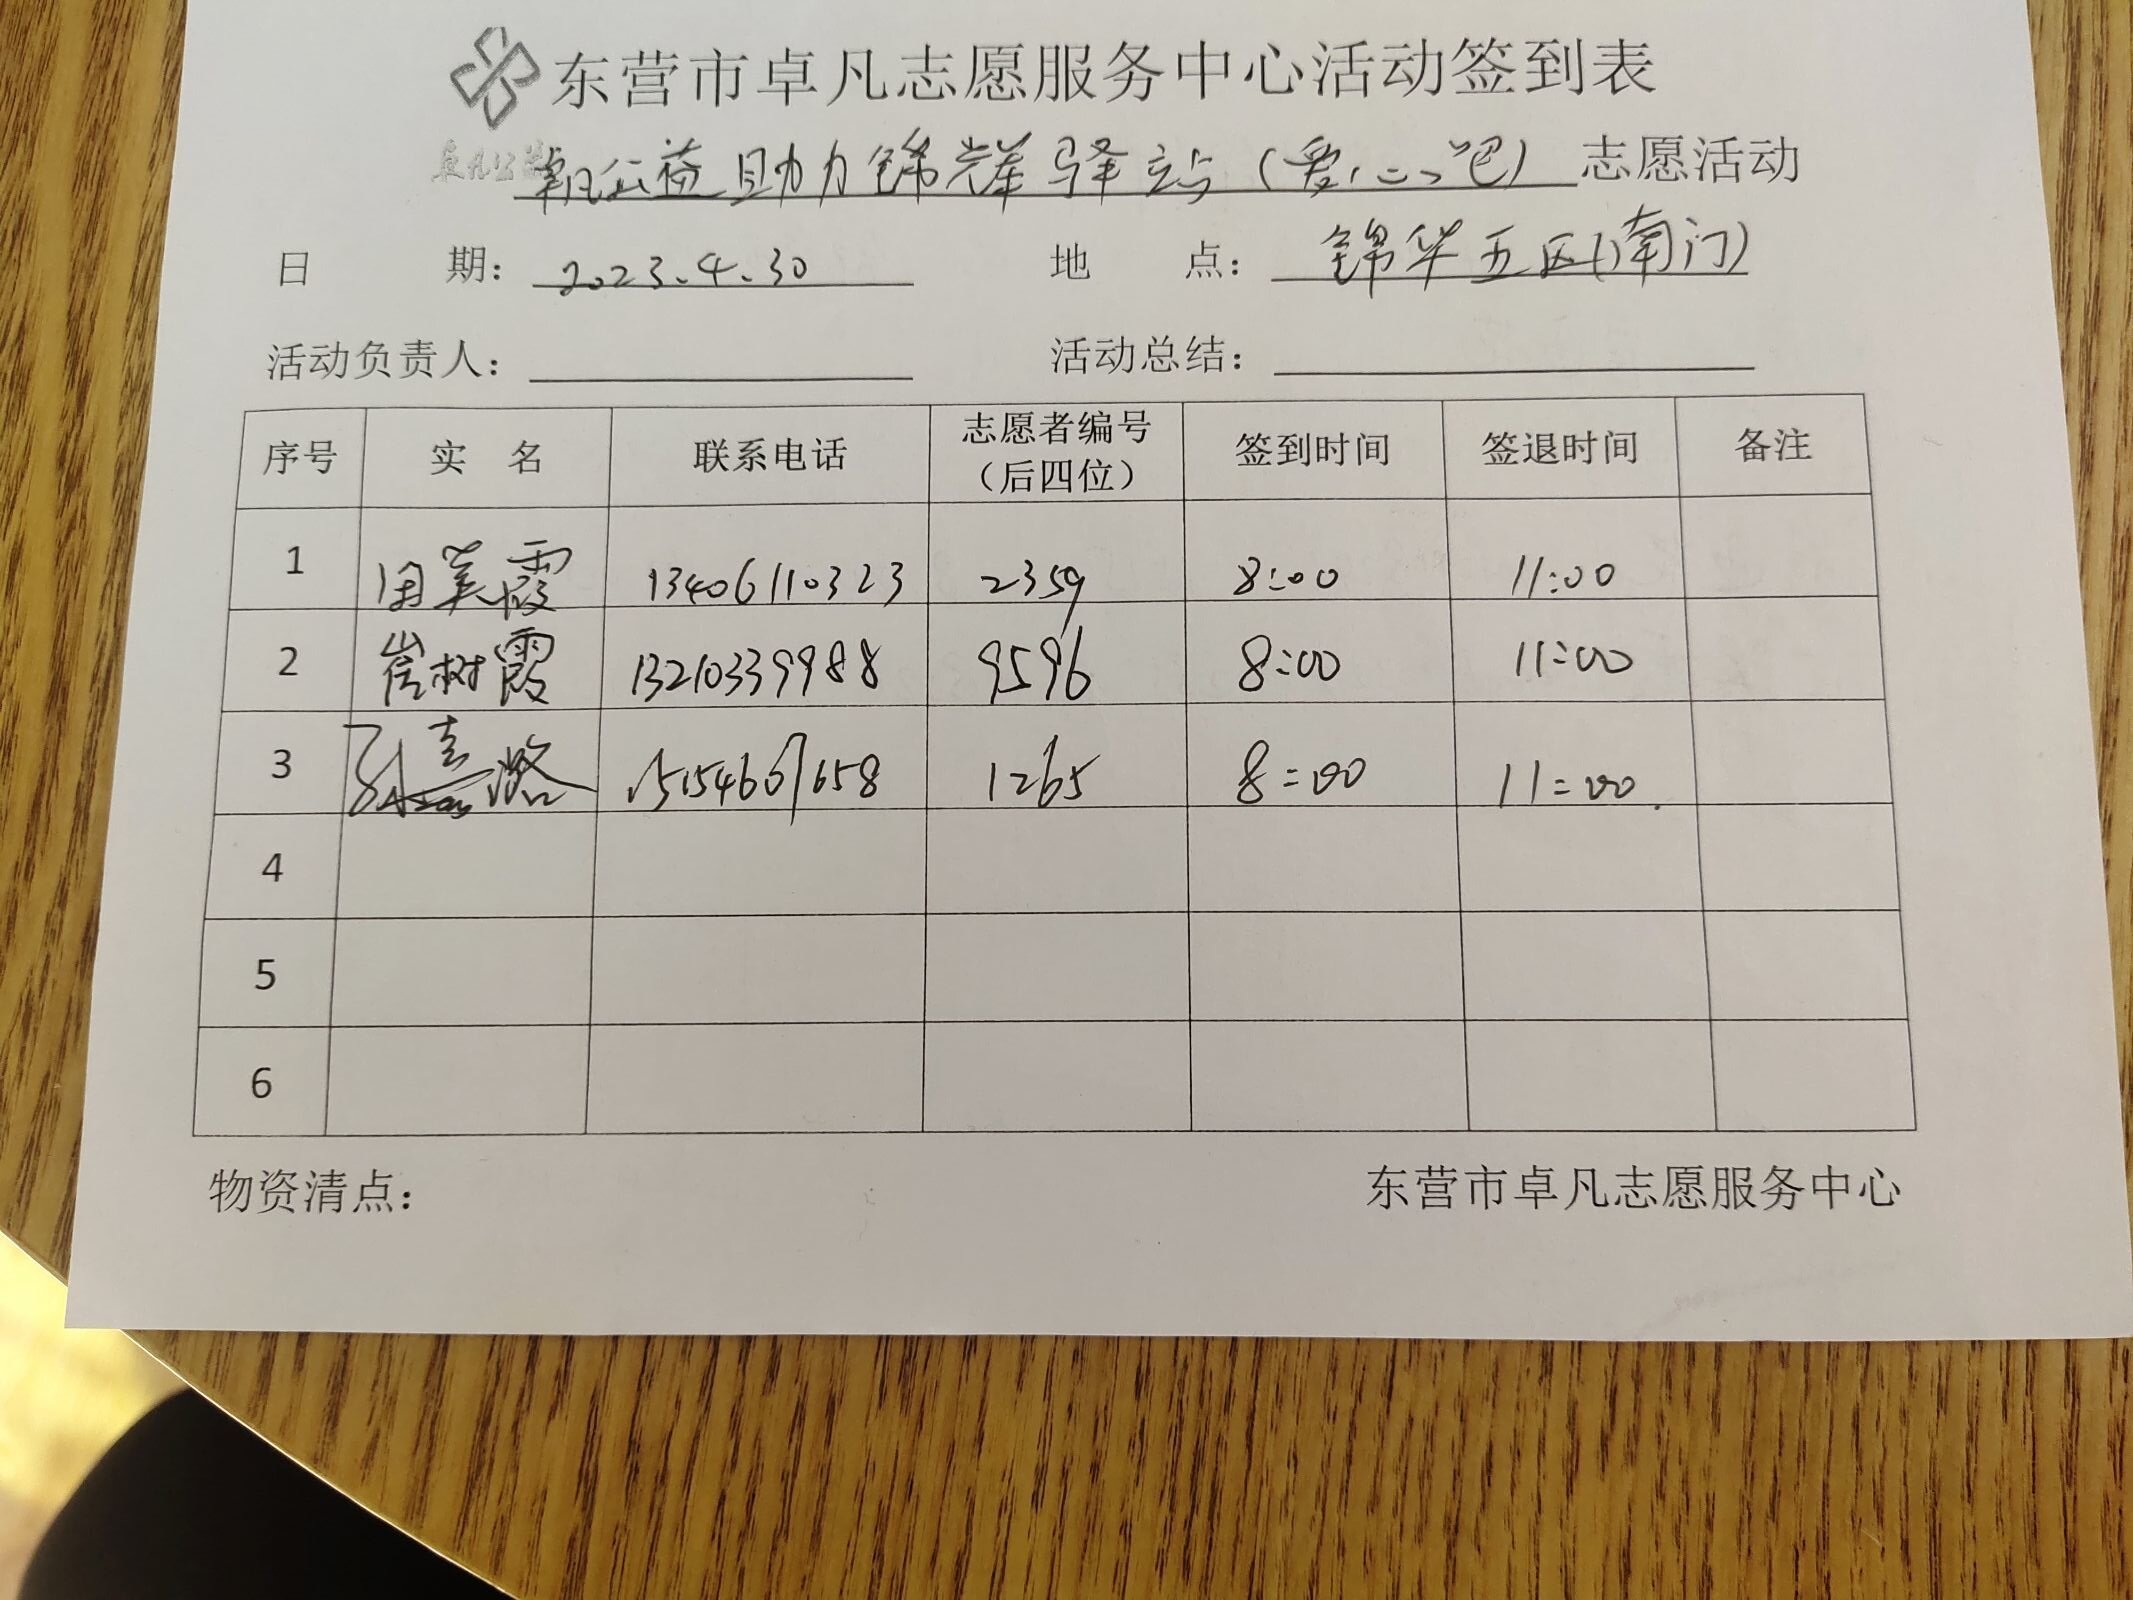 东营市卓凡志愿服务中心活动签到表
卓凡公益
卓凡公益助力锦辉驿站(爱心吧)志愿活动
日 期: 2023.4.30 地 点: 锦华五区(南门)
活动负责人: 活动总结:
序号 实 名 联系电话 志愿者编号(后四位) 签到时间 签退时间 备注
1 田美霞 13406110323 2359 8:00 11:00
2 崔树霞 13210339988 9596 8:00 11:00
3 15154607658 1265 8:00 11:00
4
5
6
物资清点: 东营市卓凡志愿服务中心